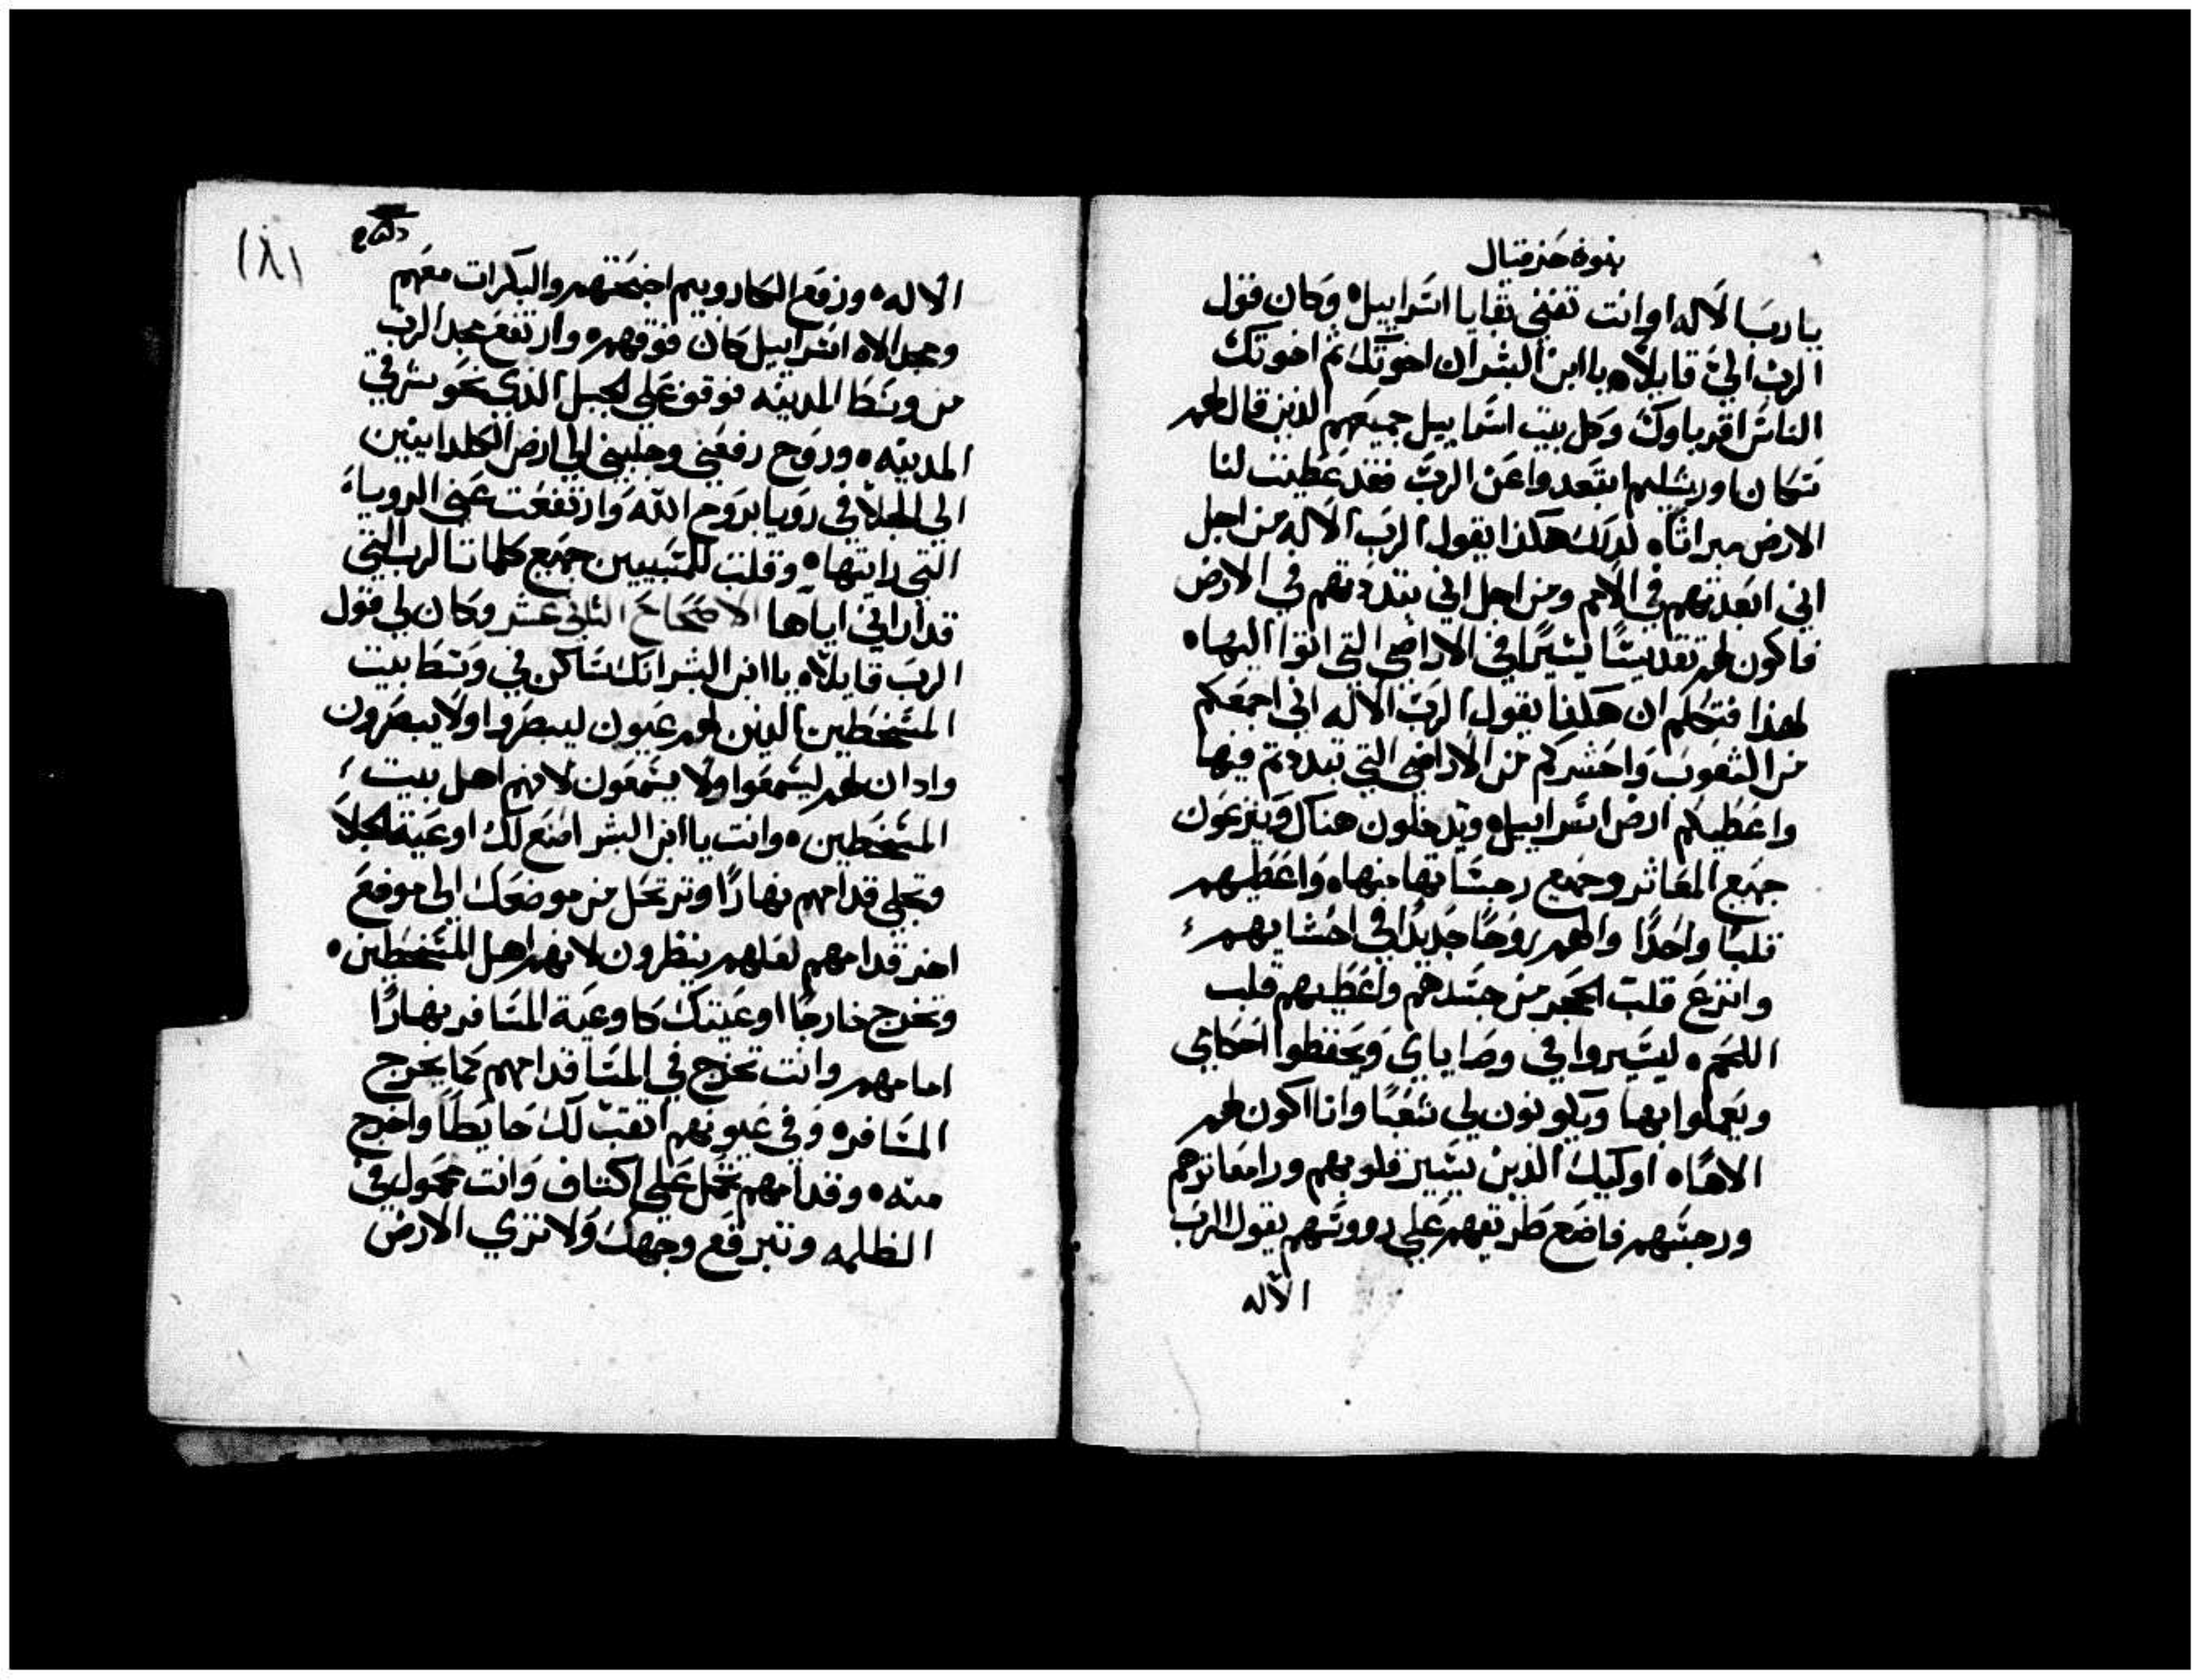 بنوة حزقيال
يا ربنا الاله اوانت تفني بقايا اسراييل ه وكان قول
الرب الي قايلاه يا ابن البشر ان اخوتك ثم اخوتك
الناس اقرباوك وكل بيت اسراييل جميعهم الذين قال لهم
سكان اورشليم ابتعدوا عن الرب فقد عطيت لنا
الارض ميراثا ه لذلك هكذا يقول الرب الاله من اجل
اني ابعدتهم في الامم ومن اجل اني بددتهم في الارض
فاكون لهم تقديسًا يسيرًا في الاراضي التي اتوا اليها ه
لهذا فتكلم ان هكذا يقول الرب الاله اني اجمعكم
من الشعوب واحشركم من الاراضي التي تبددتم فيها
واعطيكم ارض اسراييل ه ويدخلون هناك وينزعون
جميع المعاثر وجميع رجساتها منها ه واعطيهم
قلبًا واحدًا والهم روحًا جديدًا في احشايهم
وانزع قلب الحجر من جسدهم واعطيهم قلب
اللحم ه ليسيروا في وصاياي ويحفظوا احكامي
ويعملوا بها ويكونون لي شعبًا وانا اكون لهم
الاهًا ه اوليك الذين يسير قلوبهم ورا معاثرهم
ورجسهم فاضع طريقهم علي رووسهم يقول الرب
الاله
١٨١
الاله ه ورفع الكاروبيم اجنحتهم والبكرات معهم
ومجد الاه اسراييل كان فوقهم ه وارتفع مجد الرب
من وسط المدينه فوقف علي الجبل الذي نحو شرقي
المدينه ه وروح رفعني وجلبني الي ارض الكلدانيين
الي الجلا في رويا بروح الله وارتفعت عني الرويا
التي رايتها ه وقلت للمسبيين جميع كلمات الرب التي
قد اراني اياها الاصحاح الثاني عشر وكان لي قول
الرب قايلاه يا ابن البشر انك ساكن في وسط بيت
المسخطين الذين لهم عيون ليبصروا ولا يبصرون
واذان لهم ليسمعوا ولا يسمعون لانهم اهل بيت
المسخطين ه وانت يا ابن البشر اصنع لك اوعية الجلا
وتجلي قدامهم نهارًا وترتحل من موضعك الي موضع
اخر قدامهم لعلهم ينظرون لانهم اهل المسخطين ه
وتخرج خارجًا اوعيتك كاوعية المسافر نهارًا
امامهم وانت تخرج في المسا قدامهم كما يخرج
المسافر ه وفي عيونهم اثقب لك حايطًا واخرج
منه ه وقدامهم تحمل علي اكتاف وانت محمول في
الظلمه وتبرقع وجهك ولا تري الارض